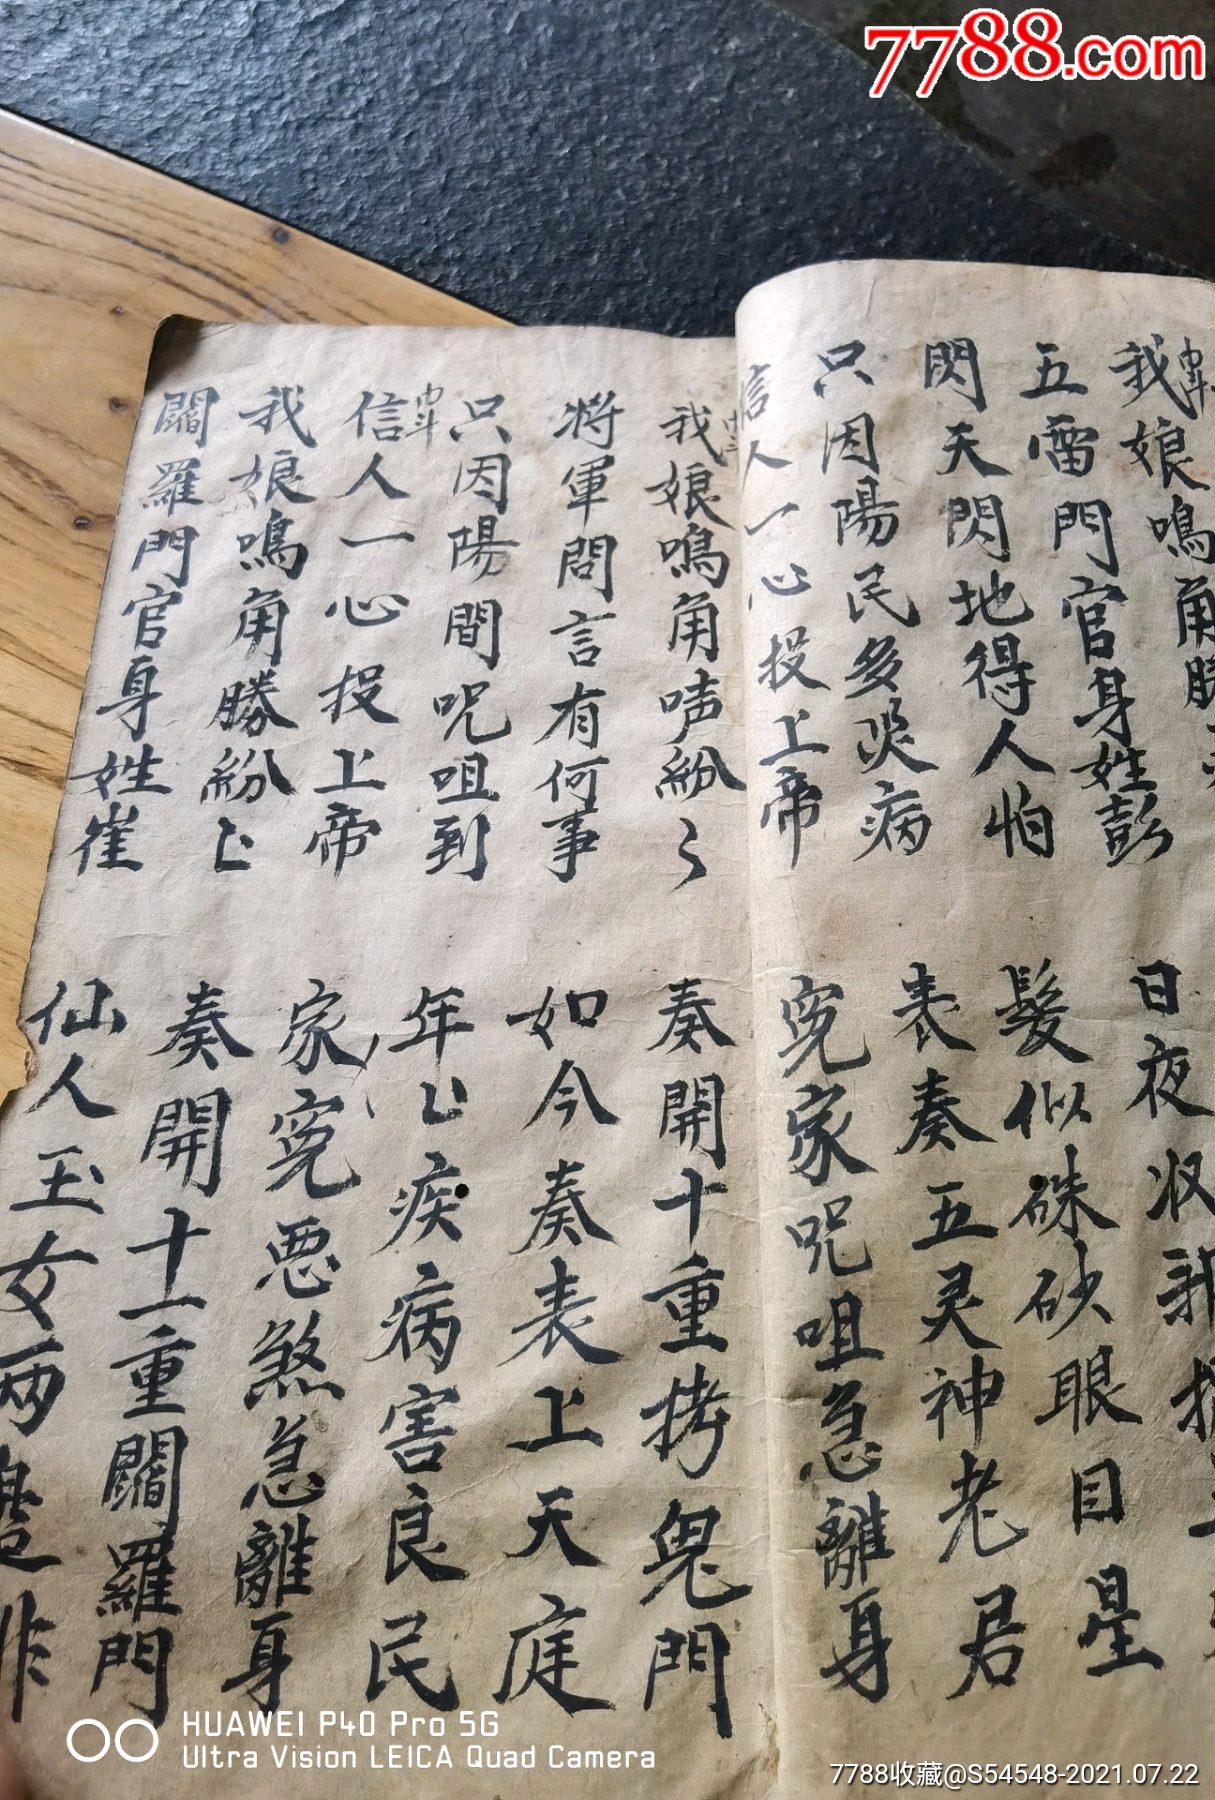 7788.com
我娘鳴角勝
日夜收
五雷門官身姓彭
髮似硃砂眼目星
閃天閃地得人怕
表奏五灵神老君
只因陽民多災病
冤家咒咀急離身
信人一心投上帝
我娘鳴角声紛々
奏開十重拷鬼門
將軍問言有何事
如今奏表上天庭
只因陽間咒咀到
年匕疾病害良民
信人一心投上帝
家冤悪煞急離身
我娘鳴角勝紛匕
奏開十一重閻羅門
閻羅門官身姓崔
仙人玉女两邊排
HUAWEI P40 Pro 5G
Ultra Vision LEICA Quad Camera
7788收藏@S54548-2021.07.22